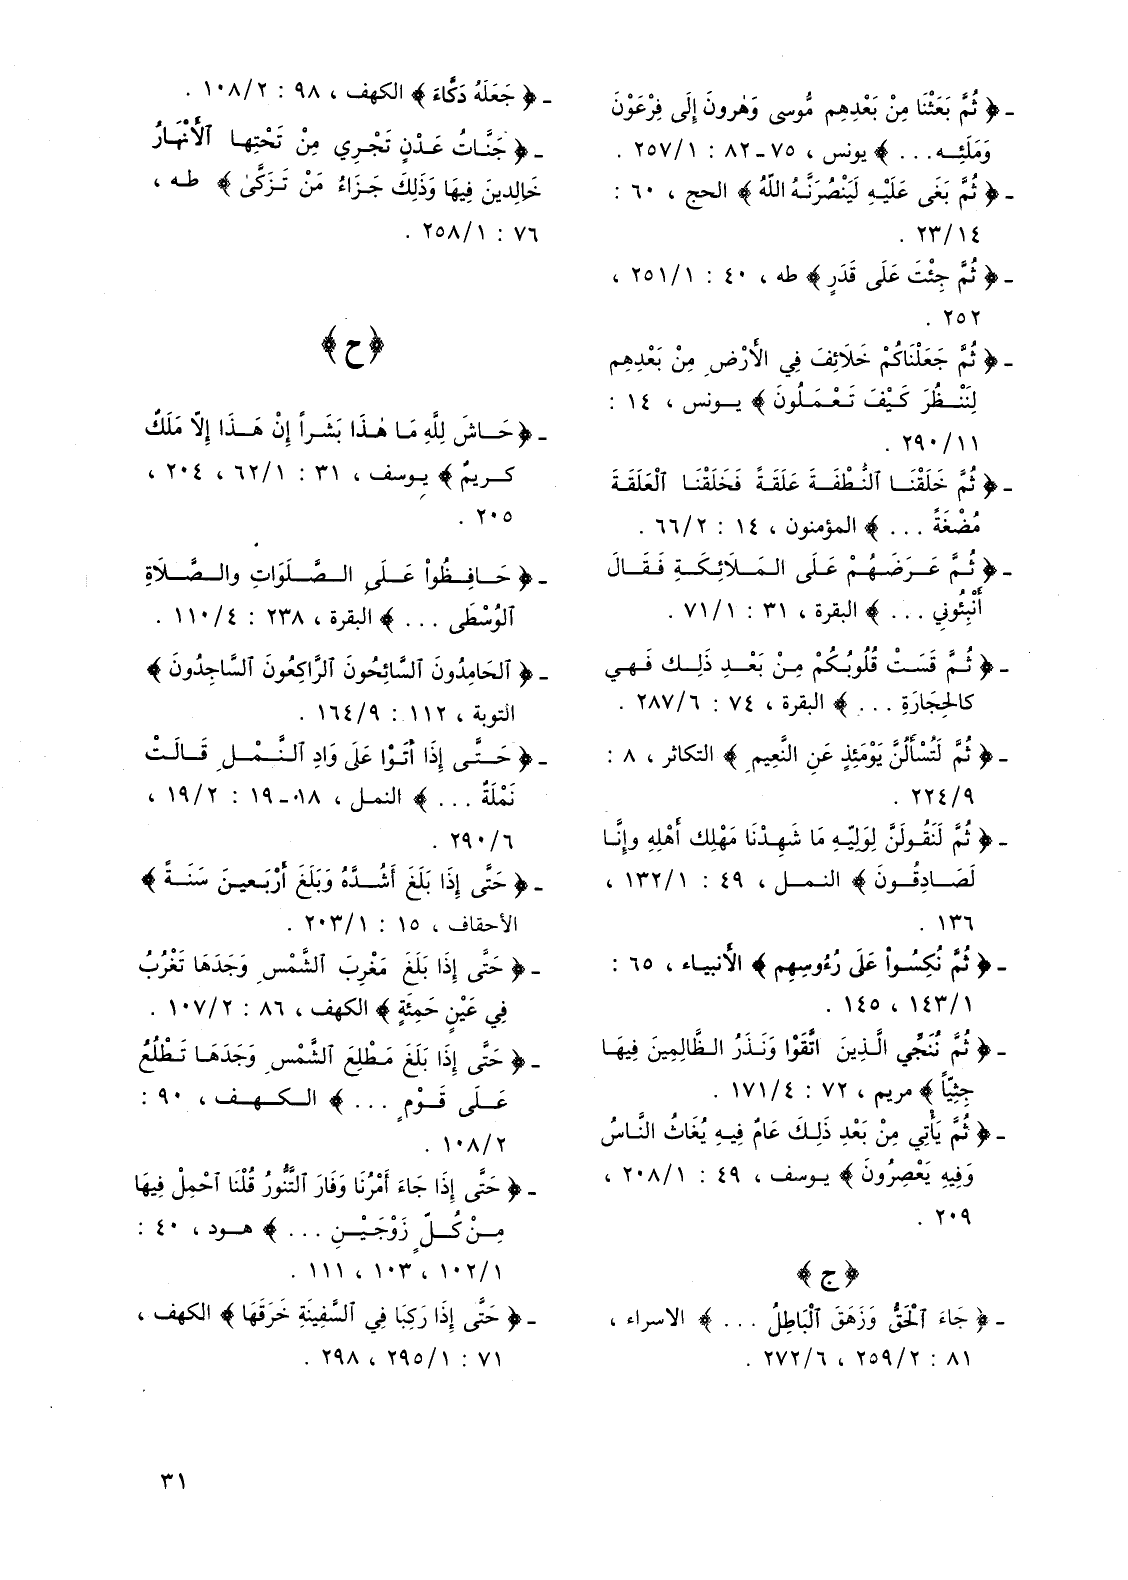 ـ ﴿ ثُمَّ بَعَثْنَا مِنْ بَعْدِهِم مُّوسى وَهٰرونَ إلَى فِرْعَوْنَ
وَمَلَئِـه... ﴾ يونس ، ٧٥ـ٨٢ : ٢٥٧/١ .
ـ ﴿ ثُمَّ بَغَى عَلَيْهِ لَيَنْصُرَنَّـهُ اللّهُ ﴾ الحج ، ٦٠ :
٢٣/١٤ .
ـ ﴿ ثُمَّ جِئْتَ عَلَى قَدَرٍ ﴾ طه ، ٤٠ : ٢٥١/١ ،
٢٥٢ .
ـ ﴿ ثُمَّ جَعَلْنَاكُمْ خَلَائِفَ فِي الأَرْضِ مِنْ بَعْدِهِم
لِنَنْـظُرَ كَيْفَ تَعْمَلُونَ ﴾ يـونس ، ١٤ :
٢٩٠/١١ .
ـ ﴿ ثُمَّ خَلَقْنَـا ٱلنُّطْفَـةَ عَلَقَةً فَخَلَقْنَـا ٱلْعَلَقَـةَ
مُضْغَةً ... ﴾ المؤمنون ، ١٤ : ٦٦/٢ .
ـ ﴿ ثُـمَّ عَـرَضَـهُـمْ عَلَى المَـلَائِكَـةِ فَـقَـالَ
أَنْبِئُونِي ... ﴾ البقرة ، ٣١ : ٧١/١ .
ـ ﴿ ثُـمَّ قَسَتْ قُلُوبُكُمْ مِـنْ بَعْـدِ ذَلِـك فَـهِي
كالحِجَارَةِ ... ﴾ البقرة ، ٧٤ : ٢٨٧/٦ .
ـ ﴿ ثُمَّ لَتُسْأَلُنَّ يَوْمَئِذٍ عَنِ النَّعِيمِ ﴾ التكاثر ، ٨ :
٢٢٤/٩ .
ـ ﴿ ثُمَّ لَنَقُولَنَّ لِوَلِيِّـهِ مَا شَهِدْنَا مَهْلِك أَهْلِهِ وإنَّـا
لَصَـادِقُـونَ ﴾ النمـل ، ٤٩ : ١٣٢/١ ،
١٣٦ .
ـ ﴿ ثُمَّ نُكِسُـواْ عَلَى رُءُوسِهِم ﴾ الأنبيـاء ، ٦٥ :
١٤٣/١ ، ١٤٥ .
ـ ﴿ ثُمَّ نُنَجِّي الَّـذِينَ اتَّقَوْا وَنَـذَرُ الـظَّالِمِينَ فِيهَـا
جِثِيّاً ﴾ مريم ، ٧٢ : ١٧١/٤ .
ـ ﴿ ثُمَّ يَأْتِي مِنْ بَعْدِ ذَلِكَ عَامٌ فِيـهِ يُغَاثُ النَّـاسُ
وَفِيهِ يَعْصِرُونَ ﴾ يـوسف ، ٤٩ : ٢٠٨/١ ،
٢٠٩ .
﴿ ج ﴾
ـ ﴿ جَاءَ ٱلْحَقُّ وَزَهَقَ ٱلْبَاطِلُ ... ﴾ الاسراء ،
٨١ : ٢٥٩/٢ ، ٢٧٢/٦ .
ـ ﴿ جَعَلَهُ دَكَّاءَ ﴾ الكهف ، ٩٨ : ١٠٨/٢ .
ـ ﴿ جَنَّـاتُ عَـدْنٍ تَجْـرِي مِنْ تَحْتِهـا ٱلأَنْهَارُ
خَالِدينَ فِيهَا وَذَلِكَ جَـزَاءُ مَنْ تَـزَكَّىٰ ﴾ طـه ،
٧٦ : ٢٥٨/١ .
﴿ ح ﴾
ـ ﴿ حَـاشَ لِلَّهِ مَـا هٰـذَا بَشَـراً إنْ هَـذَا إلّا مَلَكٌ
كـريمٌ ﴾ يـوسف ، ٣١ : ٦٢/١ ، ٢٠٤ ،
٢٠٥ .
ـ ﴿ حَـافِـظُواْ عَـلَى الـصَّـلَوَاتِ والـصَّـلَاةِ
ٱلوُسْطَى ... ﴾ البقرة ، ٢٣٨ : ١١٠/٤ .
ـ ﴿ ٱلحَامِدُونَ ٱلسَّائِحُونَ ٱلرَّاكِعُونَ ٱلسَّاجِدُونَ ﴾
التوبة ، ١١٢ : ١٦٤/٩ .
ـ ﴿ حَـتَّـى إذَا أَتَـوْا عَلَى وَادِ ٱلـنَّـمْـلِ قَـالَـتْ
نَمْلَةٌ ... ﴾ النمـل ، ١٨ـ١٩ : ١٩/٢ ،
٢٩٠/٦ .
ـ ﴿ حَتَّى إذَا بَلَغَ أَشُـدَّهُ وَبَلَغَ أَرْبَـعيـنَ سَنَـةً ﴾
الأحقاف ، ١٥ : ٢٠٣/١ .
ـ ﴿ حَتَّى إذَا بَلَغَ مَغْرِبَ ٱلشَّمْسِ وَجَدَهَا تَغْرُبُ
فِي عَيْنٍ حَمِئَةٍ ﴾ الكهف ، ٨٦ : ١٠٧/٢ .
ـ ﴿ حَتَّى إذَا بَلَغَ مَـطْلِعَ ٱلشَّمْسِ وَجَدَهَـا تَـطْلُعُ
عَـلَى قَـوْمٍ ... ﴾ الـكـهـف ، ٩٠ :
١٠٨/٢ .
ـ ﴿ حَتَّى إذَا جَاءَ أَمْرُنَا وَفَارَ ٱلتَّنُّورُ قُلْنَا ٱحْمِلْ فِيهَا
مِـنْ كُـلٍّ زَوْجَـيْـنِ ... ﴾ هـود ، ٤٠ :
١٠٢/١ ، ١٠٣ ، ١١١ .
ـ ﴿ حَتَّى إذَا رَكِبَا فِي ٱلسَّفِينَةِ خَرَقَهَا ﴾ الكهف ،
٧١ : ٢٩٥/١ ، ٢٩٨ .
٣١